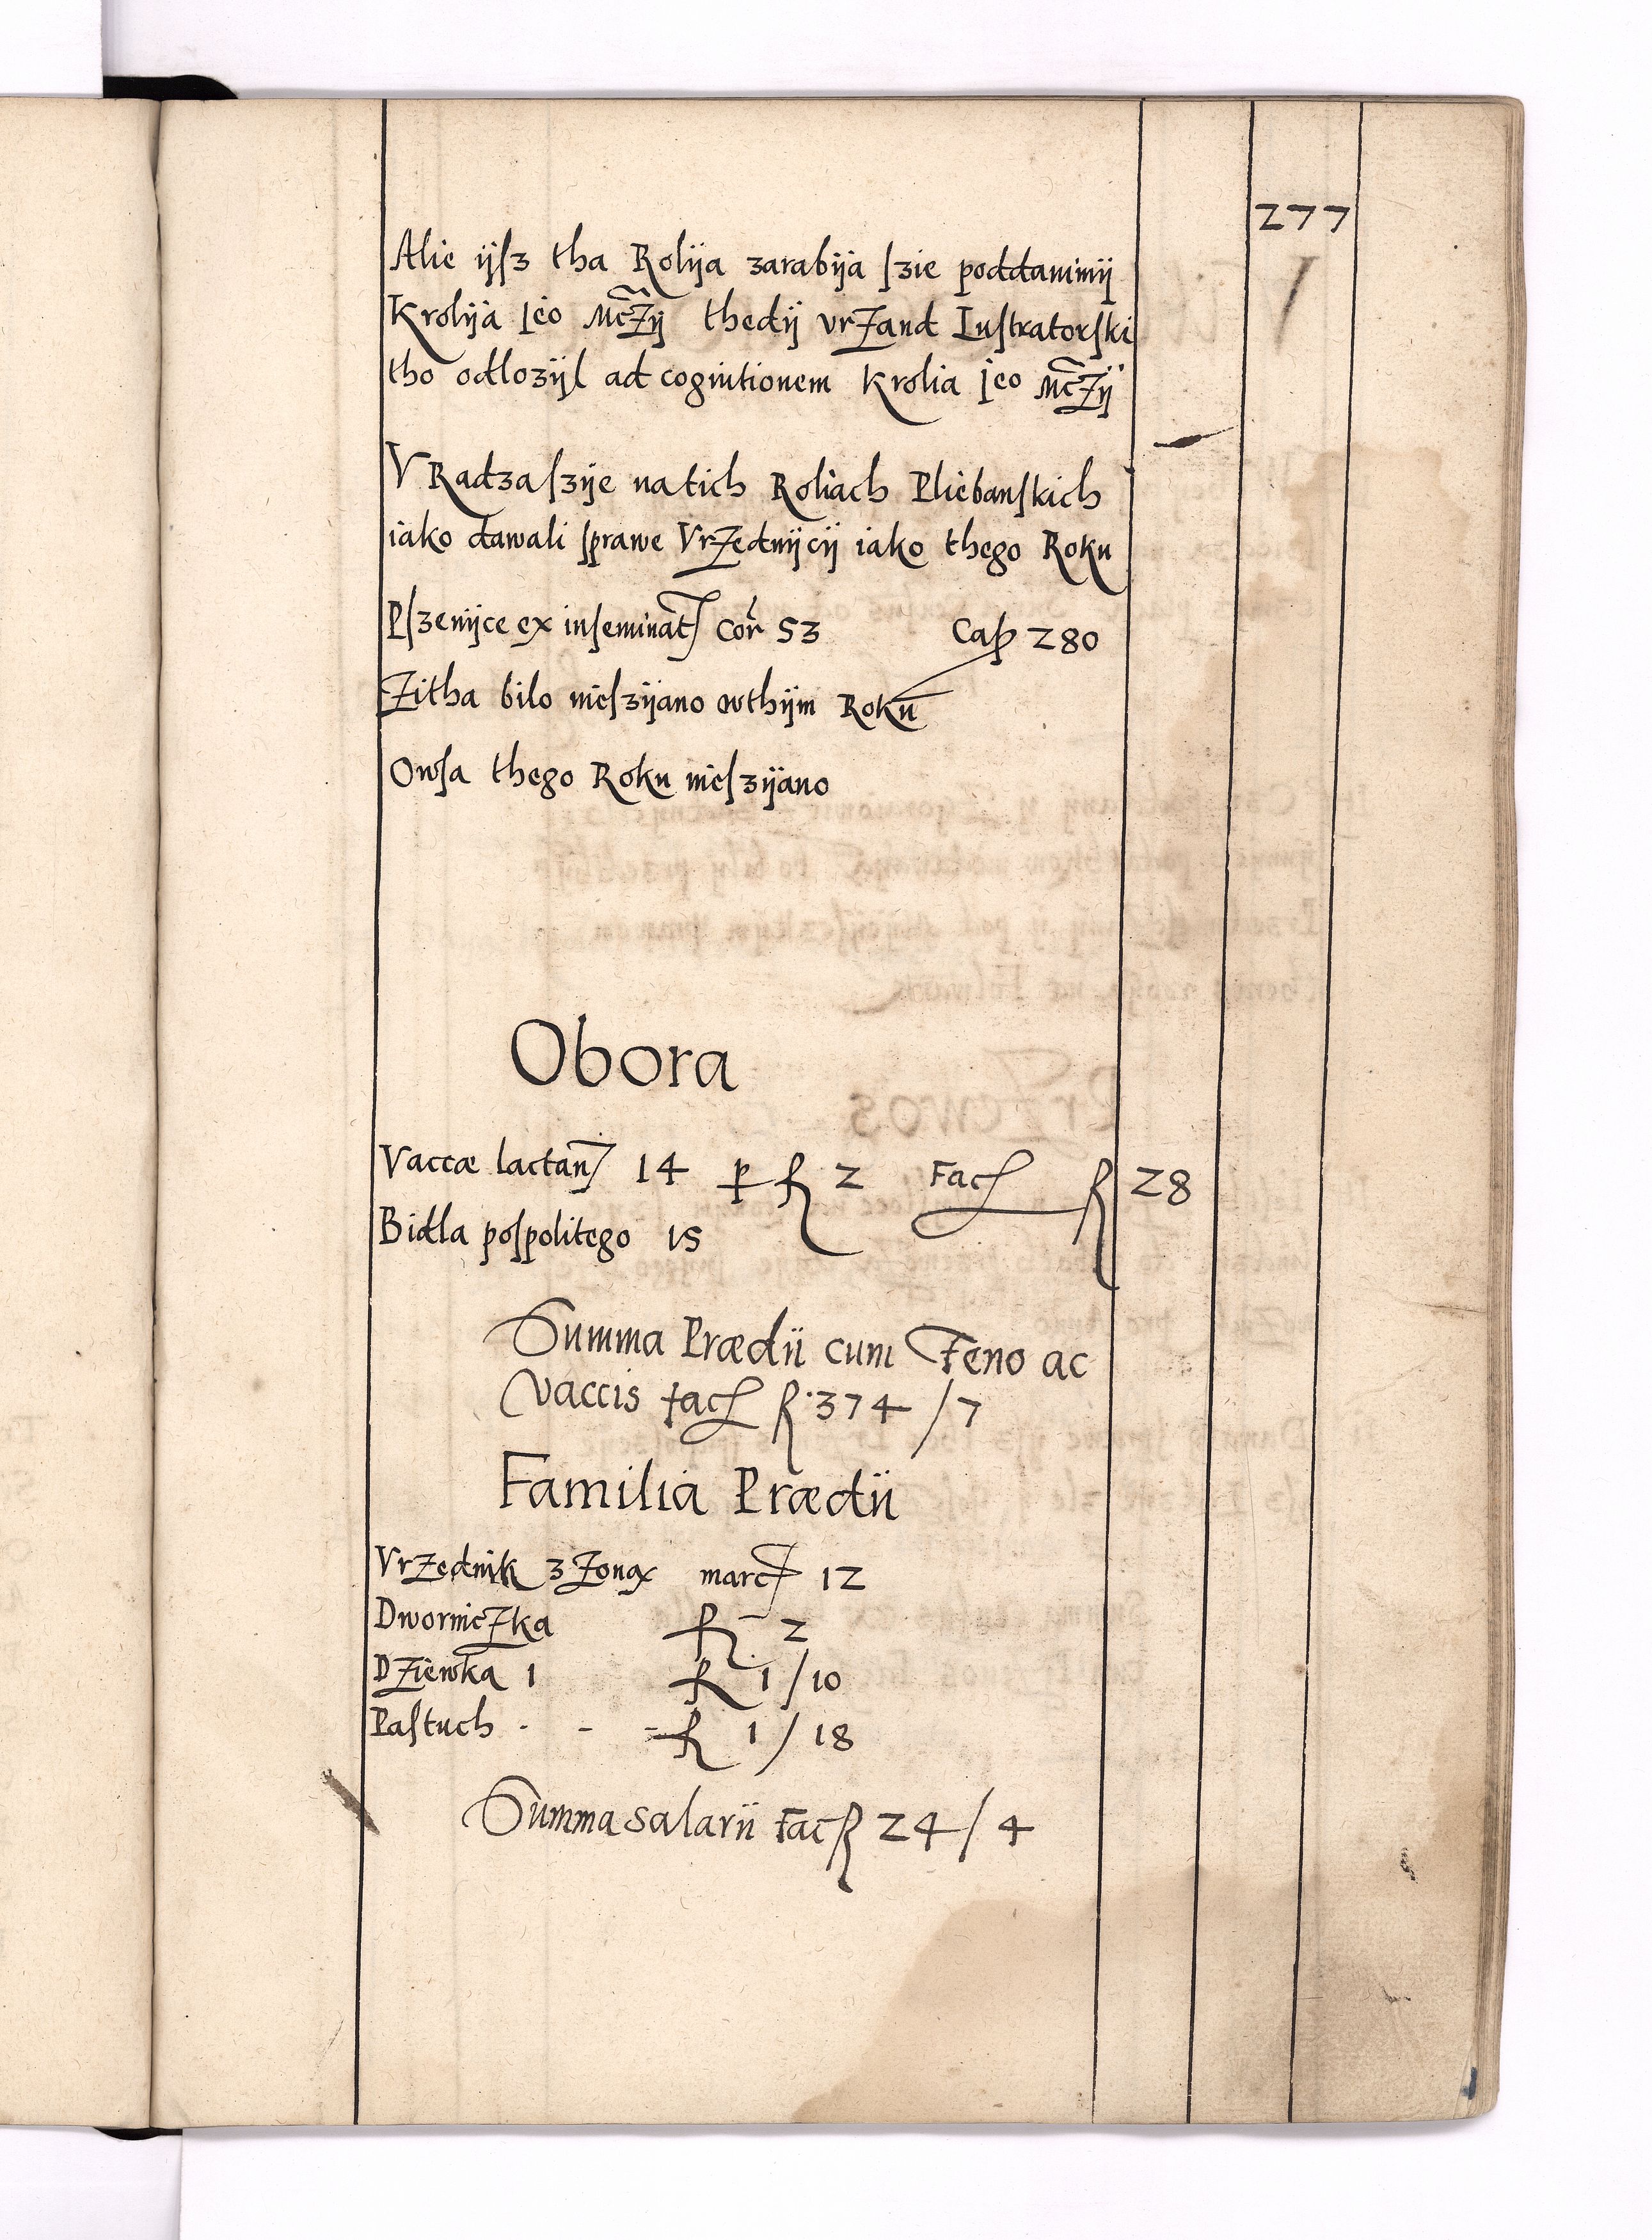 277
Alie ijſz tha Rolija zarabija ſzie poddanimij
Krolija Jeo Mc̃Zij thedij vrZand Luſtratorſki
tho odlozijl ad cognitionem Krolia Jeo Mc̃Zij
V Radzaſzije natich Roliach Pliebanſkich
iako dawali ſprawe VrZednijcij iako thego Roku
Pſzenijce ex inſeminat Cor 53 Cap 280
Zitha bilo nieſzijano wthijm Roku
Owſa thego Roku nieſzijano
Obora
Vaccæ lactan 14 p fl 2 Fac fl 28
Bidla poſpolitego 15
Summa Prædii cum Feno ac
Vaccis fac fl 374 / 7
Familia Prædii
VrZednik z Zoną marc 12
DworniczZka fl 2
DZiewka 1 fl 1 / 10
Paſtuch - - - fl 1 / 18
Summa salarii Fac fl 24 / 4